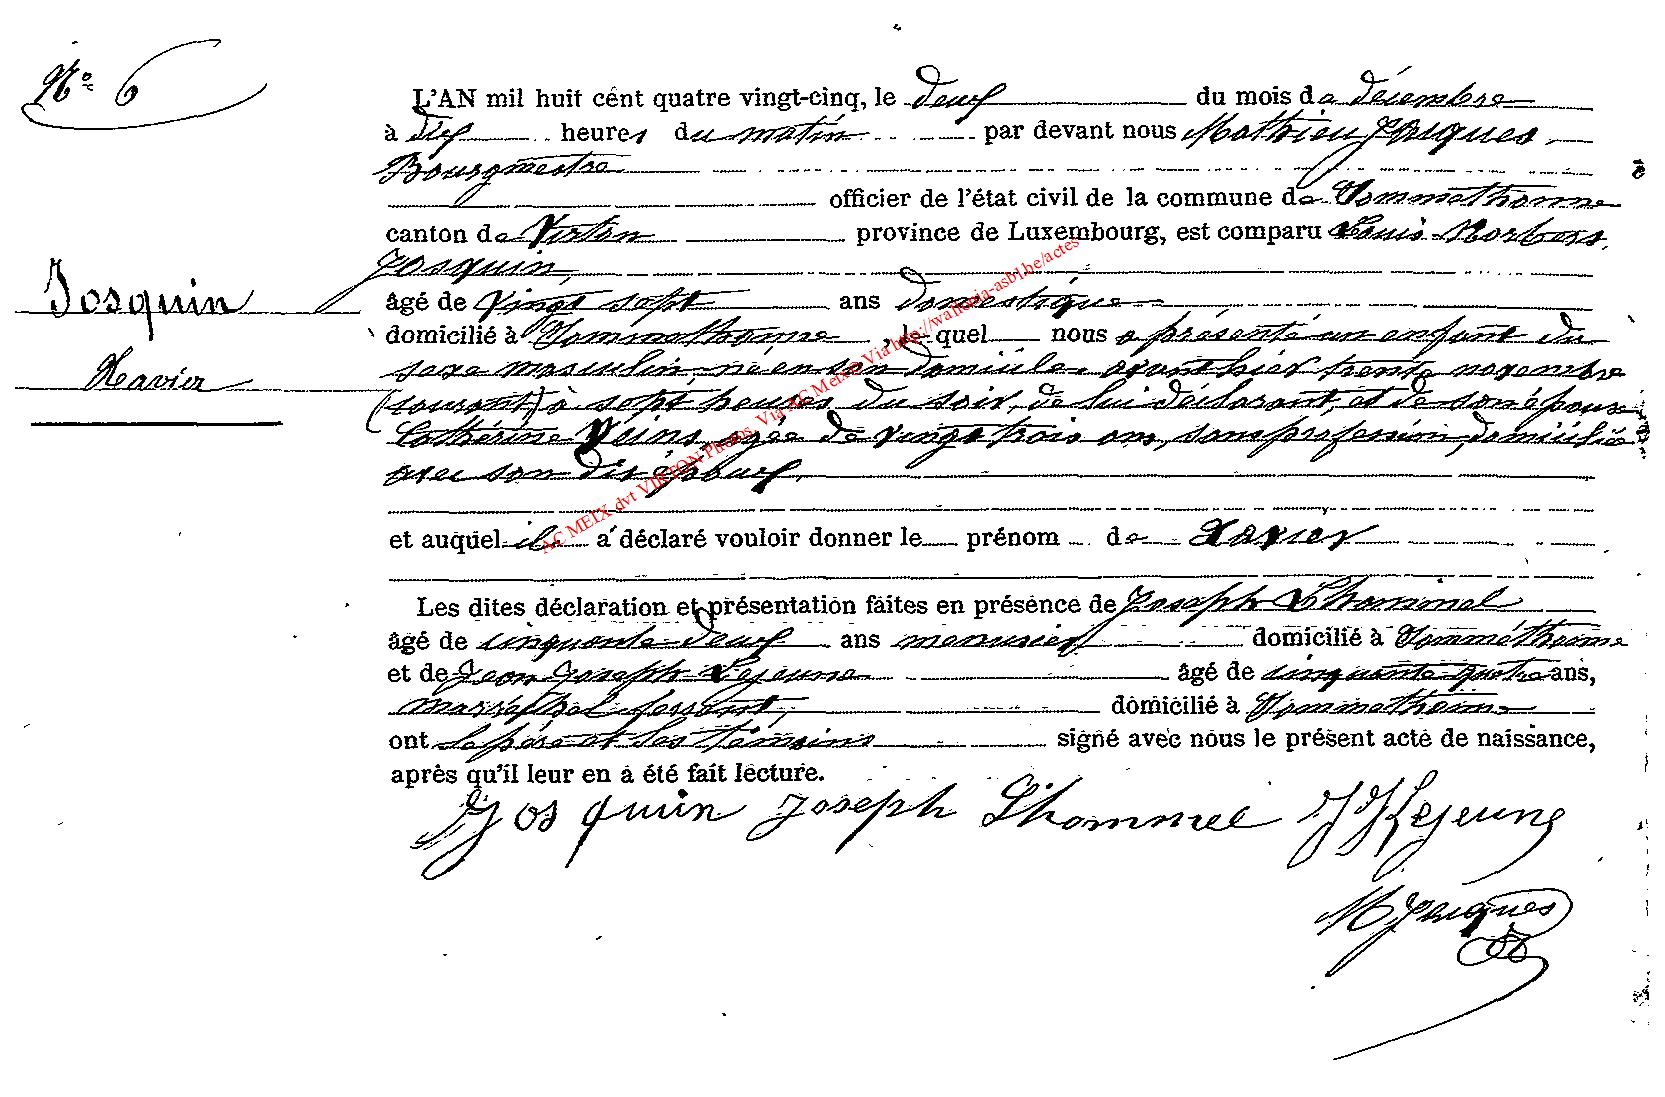 N° 6
L'AN mil huit cent quatre vingt-cinq, le deux du mois de décembre
à dix heures du matin par devant nous Mathieu Jacques
Bourgmestre
officier de l'état civil de la commune de Sommethonne
canton de Virton province de Luxembourg, est comparu Louis Norbert
Josquin,
Josquin
âgé de vingt sept ans domestique
domicilié à Sommethonne, lequel nous a présenté un enfant du
Xavier
sexe masculin né en son domicile avant hier trente novembre
(courant) à sept heures du soir, de lui déclarant, et de son épouse
Cathérine Veins, agée de vingt trois ans, sans profession, domiciliée
avec son dit époux.
et auquel il a déclaré vouloir donner le prénom de Xavier
Les dites déclaration et présentation faites en présence de Joseph Lhommel
âgé de cinquante deux ans menusier domicilié à Sommethonne
et de Jean Joseph Lejeune âgé de cinquante quatre ans,
marechal ferrant, domicilié à Sommethonne
ont le père et les témoins signé avec nous le présent acte de naissance,
après qu'il leur en a été fait lecture.
Josquin Joseph Lhommel JJ Lejeune
M Jacques
AC MEIX dvt VIRTON Photos Via AC Meix Via http://wallonia-asbl.be/actes